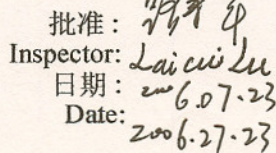 批准:
Inspector: Lai cui Lu
日期: 2006.07.23
Date: 2006.27.23